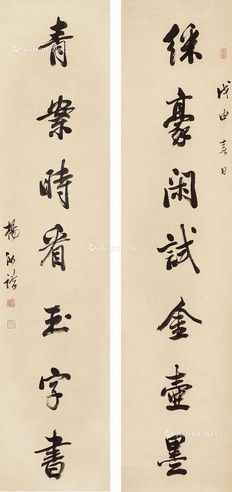 綵豪閑試金壺墨
戊申日
青案時看玉字書
楊泗孫
Artron.Net